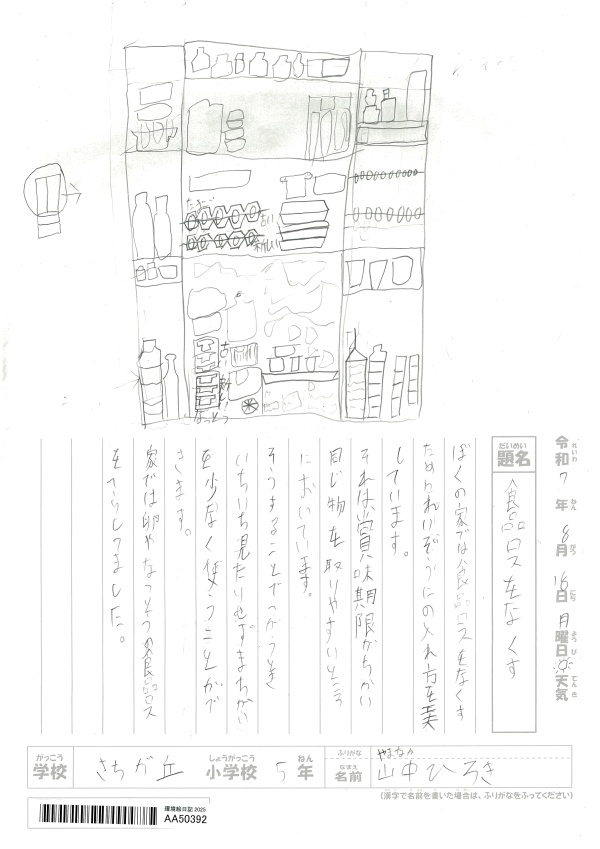 たまご
古い
新しい
古い
新しい
なっとう
令和7年8月18日月曜日 天気
れいわ ねん がつ にち ようび てんき
だいめい
題名
食品ロスをなくす
ぼくの家では食品ロスをなくす
ためにれいぞうこの入れ方を工夫
しています。
それは賞味期限がちかい
同じ物を取りやすいところ
においています。
そうすることでつかうとき
いちいち見たりせずまちがい
を少なく使うことがで
きます。
家では卵やなっとうの食品ロス
をへらしてました。
がっこう
学校
さちが丘
しょうがっこう
小学校
5
ねん
年
ふりがな
やまなか
なまえ
名前
山中ひろき
(漢字で名前を書いた場合は、ふりがなをふってください)
環境絵日記 2025
AA50392